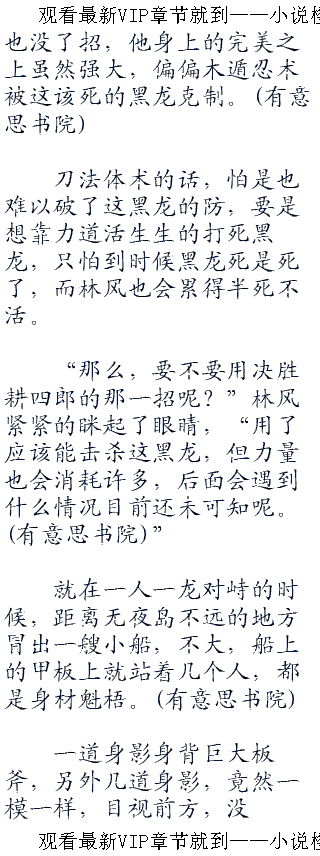 观看最新VIP章节就到——小说
也没了招，他身上的完美之
上虽然强大，偏偏木遁忍术
被这该死的黑龙克制。(有意
思书院)
刀法体术的话，怕是也
难以破了这黑龙的防，要是
想靠力道活生生的打死黑
龙，只怕到时候黑龙死是死
了，而林风也会累得半死不
活。
“那么，要不要用决胜
耕四郎的那一招呢？”林风
紧紧的眯起了眼睛，“用了
应该能击杀这黑龙，但力量
也会消耗许多，后面会遇到
什么情况目前还未可知呢。
(有意思书院)”
就在一人一龙对峙的时
候，距离无夜岛不远的地方
冒出一艘小船，不大，船上
的甲板上就站着几个人，都
是身材魁梧。(有意思书院)
一道身影身背巨大板
斧，另外几道身影，竟然一
模一样，目视前方，没
观看最新VIP章节就到——小说